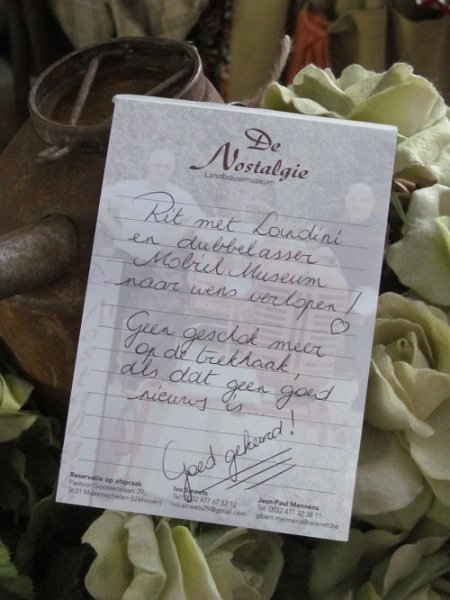 De
Nostalgie
Landbouwmuseum
Rit met Landini
en dubbelasser
Mobiel Museum
naar wens verlopen!
Geen geschok meer
op de trekhaak,
als dat geen goed
nieuws is ...
Goed gekeurd!
Reservatie op afspraak
Pastoor Goossenslaan 29,
3631 Maasmechelen (Uikhoven)
Ivo Smeets
Tel. 0032 477 67 52 12
ivo.smeets29@gmail.com
Jean-Paul Mennens
Tel. 0032 477 22 38 11
albert.mennens@telenet.be